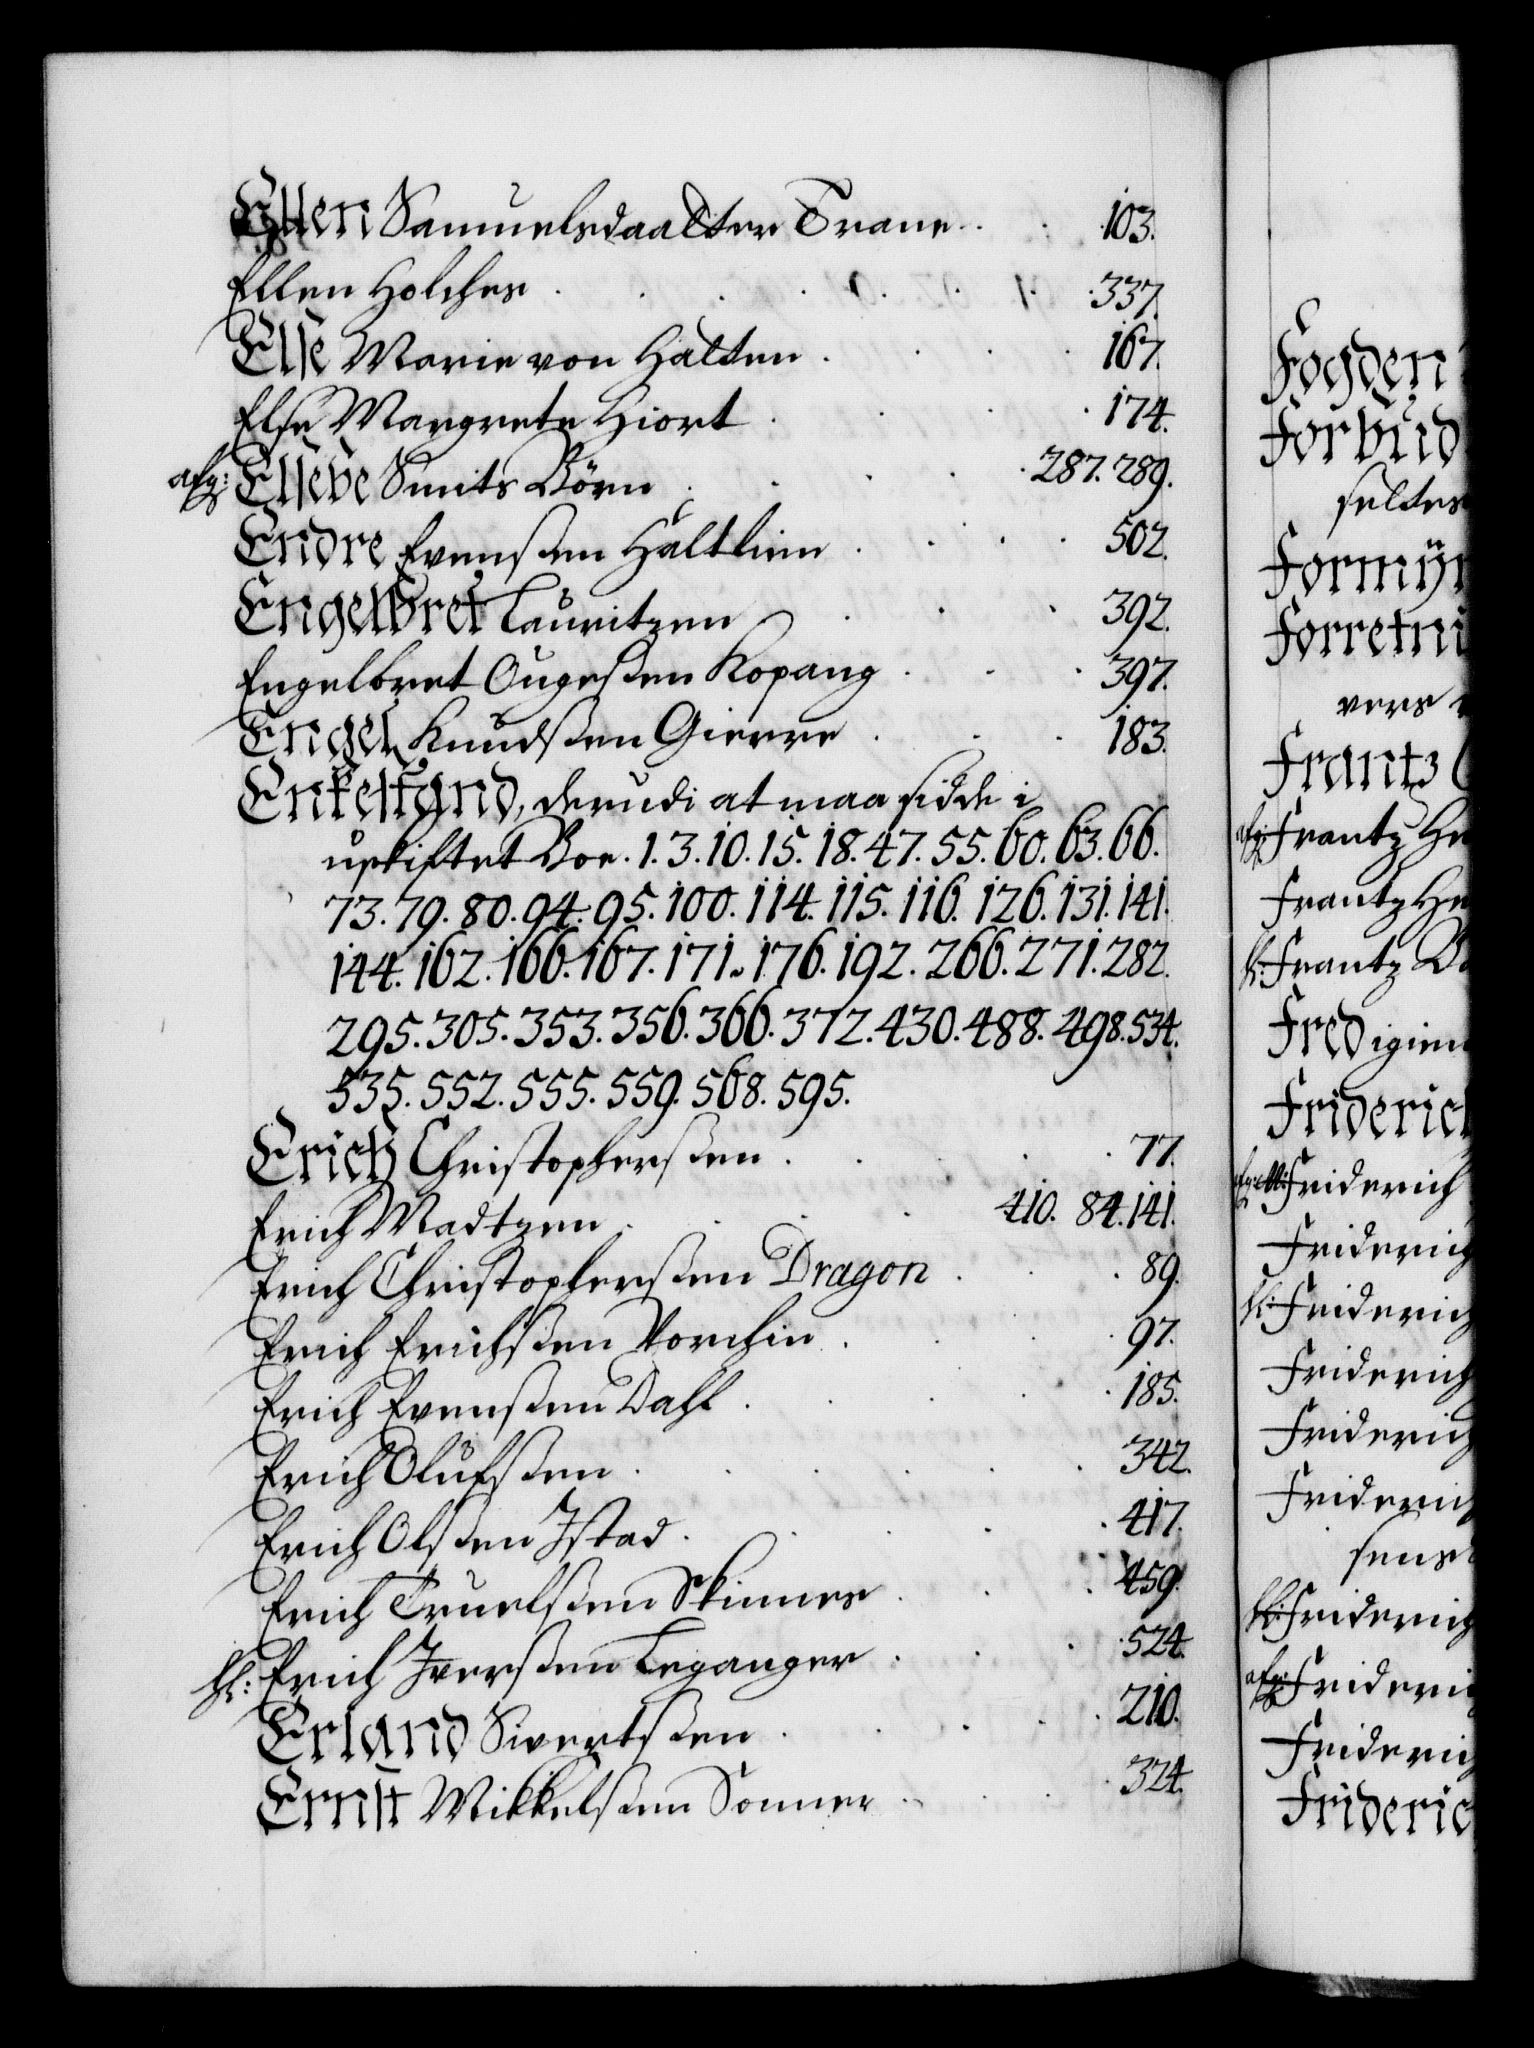 Ellen Samuelsdaatter Trane . . 103.
Ellen Holches . . . . . . . 337.
Else Marie von Hälten . . . . 167.
Else Margrete Hiort . . . . 174.
afg: Elsebe Smits Börn . . . . 287. 289.
Endre Evenssen Hältlien . . . . 502.
Engelbret Lauritzen . . . 392.
Engelbret Ougessen Kopang . . . 397.
Engel Knudssen Gierre . . . 183.
Enkestand, derudi at maa sidde i
uskiftet Boe. 1. 3. 10. 15. 18. 47. 55. 60. 63. 66.
73. 79. 80. 94. 95. 100. 114. 115. 116. 126. 131. 141.
144. 162. 166. 167. 171. 176. 192. 266. 271. 282.
295. 305. 353. 356. 366. 372. 430. 488. 498. 534.
535. 552. 555. 559. 568. 595.
Erich Christopherssen . . . . . 77.
Erich Madtzen . . . . 410. 84. 141.
Erich Christopherssen Dragon . . . 89.
Erich Erichssen Vorchin . . . . 97.
Erich Evenssen Dahl . . . . . 185.
Erich Olufssen . . . . . . 342.
Erich Olssen Istad . . . . . 417.
Erich Truelssen Skinnes . . . 459.
Erich Iverssen Leganger . . . 524.
Erland Sivertssen . . . . . 210.
Ernst Mikkelssen Sonner . . . 324.
Fogden
Forbud
seltes
Formyn
Forretni
vers
Frantz
afg: Frantz He
Frantz He
Frantz Bo
Fred igien
Friderich
Friderich
Friderich
Friderich
Friderich
Friderich
Friderich
sens
Friderich
afg: Friderich
Friderich
Frideric